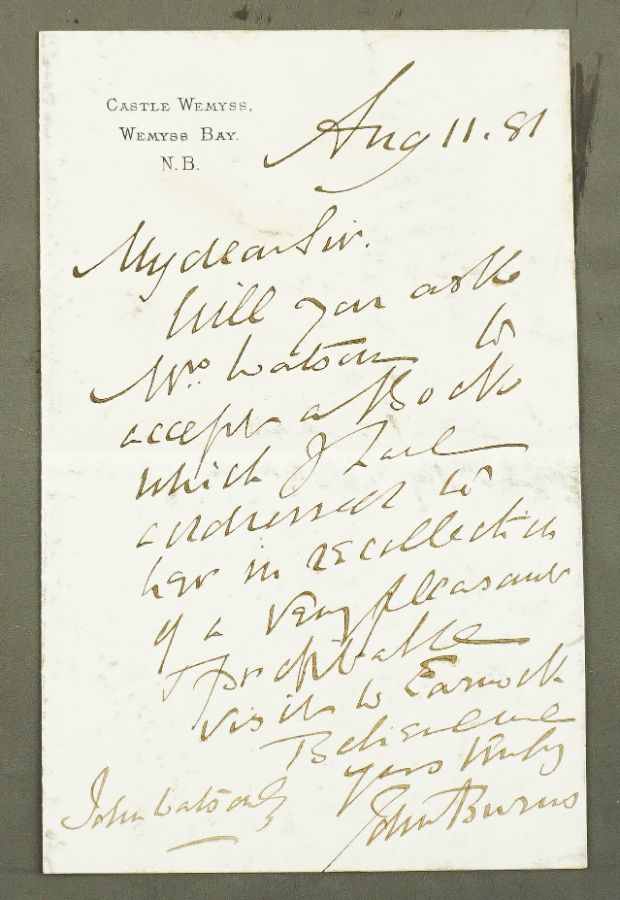 CASTLE WEMYSS,
WEMYSS BAY.
N.B.
Aug 11. 81
My dear Sir.
Will you ask
Mrs. Watson to
accept a Book
which I have
addressed to
her in recollection
of a very pleasant
& profitable
visit to Earnock
Believe me
yours truly
John Burns
John Watson Esq